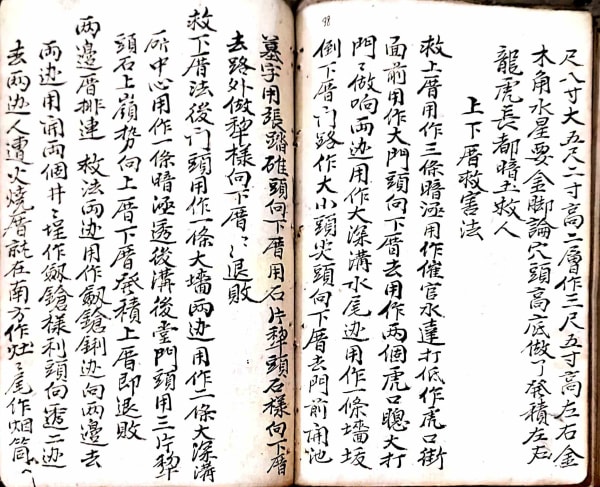 尺八寸大五尺二寸高二層作三尺五寸高左右金
木角水星要金腳論穴頭高底做了發積左右
龍虎長都暗圡救人
上下厝救害法
救上厝用作三條暗涵用作催官水達打低作虎口街
面前用作大門頭向下厝去用作兩個虎口聰大打
門〻做响兩边用作大深溝水尾边用作一條墻坂
倒下厝门路作大小頭尖頭向下厝去門前開池
墓字用張踏碓頭向下厝用石片犂頭石樣向下厝
去路外做犂樣向下厝〻退敗
救下厝法後门頭用作一條大墻兩边用作二條大深溝
所中心用作一條暗涵透後溝後堂門頭用三片犂
頭石上嶺势向上厝下厝發積上厝即退敗
兩邊厝排連 救法兩边用作劔鎗銅边向兩邊去
兩边用開兩個井〻埕作劔鎗樣利頭向透二边
去兩边人遭火燒厝就在南方作灶〻尾作烟筒